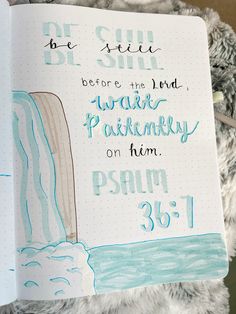 BE STILL
be still
BE STILL
before the Lord,
wait
Paitently
on him.
PSALM
36:7